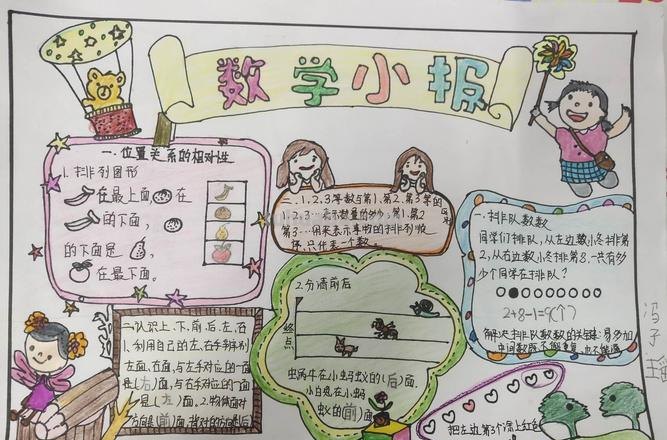 数学小报
一.位置关系的相对性
1.排列图形
在最上面,在
的下面,
的下面是,
在最下面。
二.1、2、3等数与第1、第2、第3等的区别
1、2、3…表示数量的多少;第1、第2
第3…用来表示事物的排列顺
序,只代表一个数。
一.排队数数
同学们排队,从左边数小冬排第
2,从右边数小冬排第8,一共有多
少个同学在排队?
2+8-1=9(个)
解决排队数数的关键:易多加
中间数既不能重复,也不能漏
2.分清前后
终点
蜗牛在小蚂蚁的(后)面,
小白兔在小蚂
蚁的(前)面
一.认识上、下、前、后、左、右
1.利用自己的左、右手辨别
左面、右面,与左手对应的一面
是(左)面,与右手对应的一面
是(右)面。2.物体面对
方向是(前)面,背对的方向是后
把左边第3个涂上红色
冯子